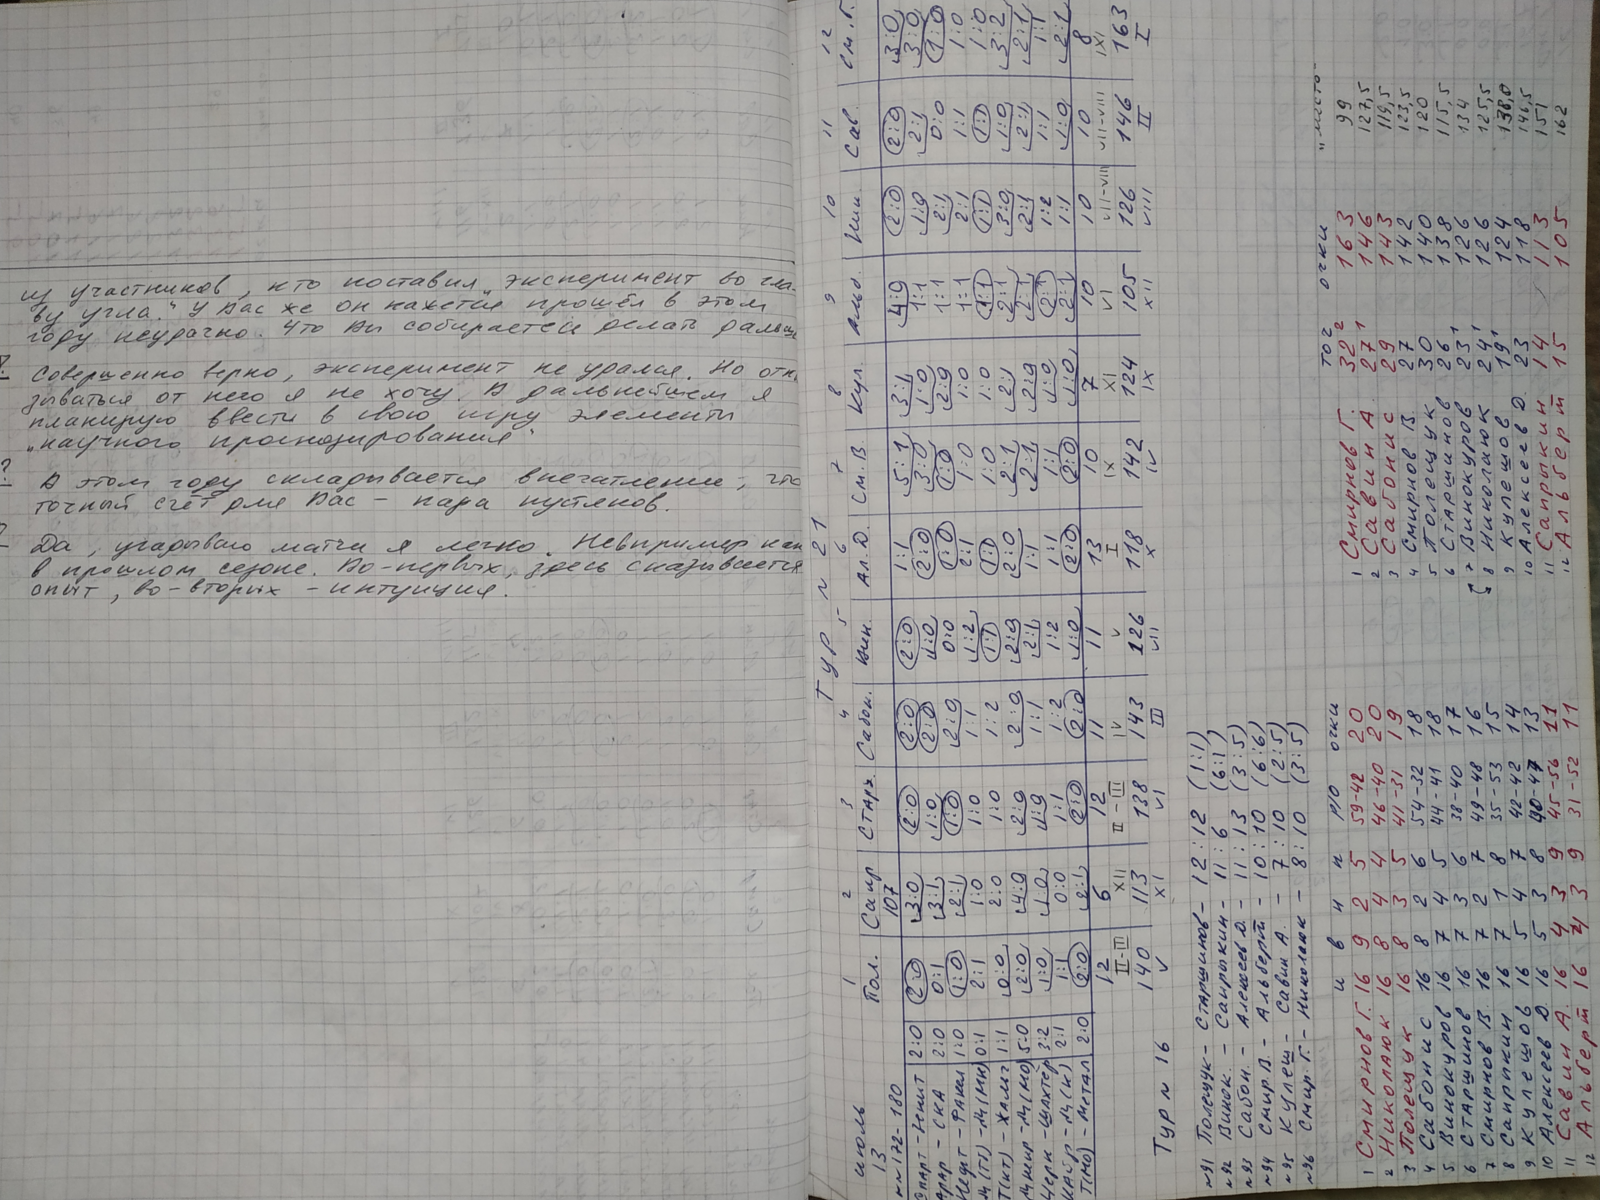 из участников, кто поставил „эксперимент во гла-
ву угла." У Вас же он кажется прошёл в этом
году неудачно. Что Вы собираетесь делать дальше
Совершенно верно, эксперимент не удался. Но отка
зываться от него я не хочу. В дальнейшем я
планирую ввести в свою игру элементы
„научного прогнозирования"
? В этом году складывается впечатление, что
точный счёт для Вас – пара пустяков.
Да, угадываю матчи я легко. Невпример как
в прошлом сезоне. Во-первых, здесь сказывается
опыт, во-вторых – интуиция.
Тур № 21
июль 13
№№ 172-180
1 2 3 4 5 6 7 8 9 10 11 12
Пол. Сапр Старш Сабон. Вин. Ал.Д. См.В Кул. Альб. Ник. Сав. См.Г.
107
Спарт - Зенит 2:0 2:0 3:0 2:0 2:0 2:0 1:1 5:1 3:1 4:0 2:0 2:0 3:0
Арар - СКА 2:0 0:1 3:1 1:0 2:0 1:0 2:0 3:0 1:0 1:1 1:0 2:1 3:0
1:0 1:0 2:1 1:0 2:0 0:0 1:0 1:0 2:0 1:1 2:1 0:0 1:0
Д(Тб) - Д(Мн) 0:1 2:1 1:0 1:0 1:1 1:2 2:1 1:0 1:0 1:1 2:1 1:1 1:0
1:1 0:0 2:0 1:0 1:2 1:1 1:1 1:0 1:0 1:1 1:1 1:1 1:0
Днепр - Д(Мо) 5:0 2:0 4:0 2:0 2:0 2:0 2:0 2:1 2:1 2:1 3:0 1:0 3:2
Черн - Шахтёр 3:2 1:0 1:0 1:0 1:1 2:1 1:1 2:1 2:0 2:1 2:1 2:1 2:1
Кайр - Д(К) 2:1 1:1 0:0 1:1 1:2 1:2 1:1 1:1 1:0 2:1 1:2 1:1 1:1
Т(Мо) - Метал 2:0 2:0 2:1 2:0 2:0 1:0 2:0 2:0 1:0 2:1 1:1 1:0 2:1
12 6 12 11 11 13 10 7 10 10 10 8
II-III XII II-III IV V I IX XI VI VII-VIII VII-VIII XI
140 113 138 143 126 118 142 124 105 126 146 163
V XI VI III VII X IV IX XII VIII II I
Тур № 16
№91 Полещук - Старшинов - 12:12 (1:1)
№92 Винок. - Сапрыкин - 11:6 (6:1)
№93 Сабон. - Алексеев Д. - 11:13 (3:5)
№94 Смир.В - Альберт - 10:10 (6:6)
№95 Кулеш - Савин А. - 7:10 (2:5)
№96 Смир.Г. - Николаюк - 8:10 (3:5)
и в н п Р/О очки
1 Смирнов Г. 16 9 2 5 59-42 20
2 Николаюк 16 8 4 4 46-40 20
3 Полещук 16 8 3 5 41-31 19
4 Сабонис 16 8 2 6 54-32 18
5 Винокуров 16 7 4 5 44-41 18
6 Старшинов 16 7 3 6 38-40 17
7 Смирнов В. 16 7 2 7 49-48 16
8 Сапрыкин 16 7 1 8 35-53 15
9 Кулешов 16 5 4 7 42-42 14
10 Алексеев Д. 16 5 3 8 13
11 Савин А. 16 4 3 9 45-56 11
12 Альберт 16 4 3 9 31-52 11
точ очки „место"
1 Смирнов Г. 32 2 163 99
2 Савин А. 27 1 146 127,5
3 Сабонис 29 143 119,5
4 Смирнов В. 27 142 123,5
5 Полещук 30 140 120
6 Старшинов 26 1 138 115,5
7 Винокуров 23 1 126 134
8 Николаюк 24 1 126 125,5
9 Кулешов 19 1 124 138,0
10 Алексеев Д 23 118 146,5
11 Сапрыкин 14 113 151
12 Альберт 15 105 162